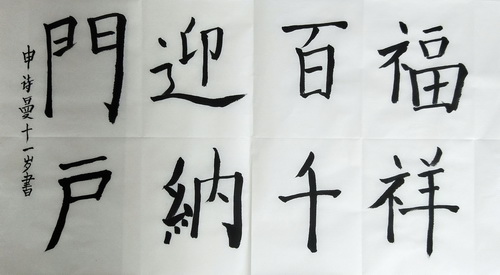 福祥
百千
迎納
門戸
申诗曼十一岁書